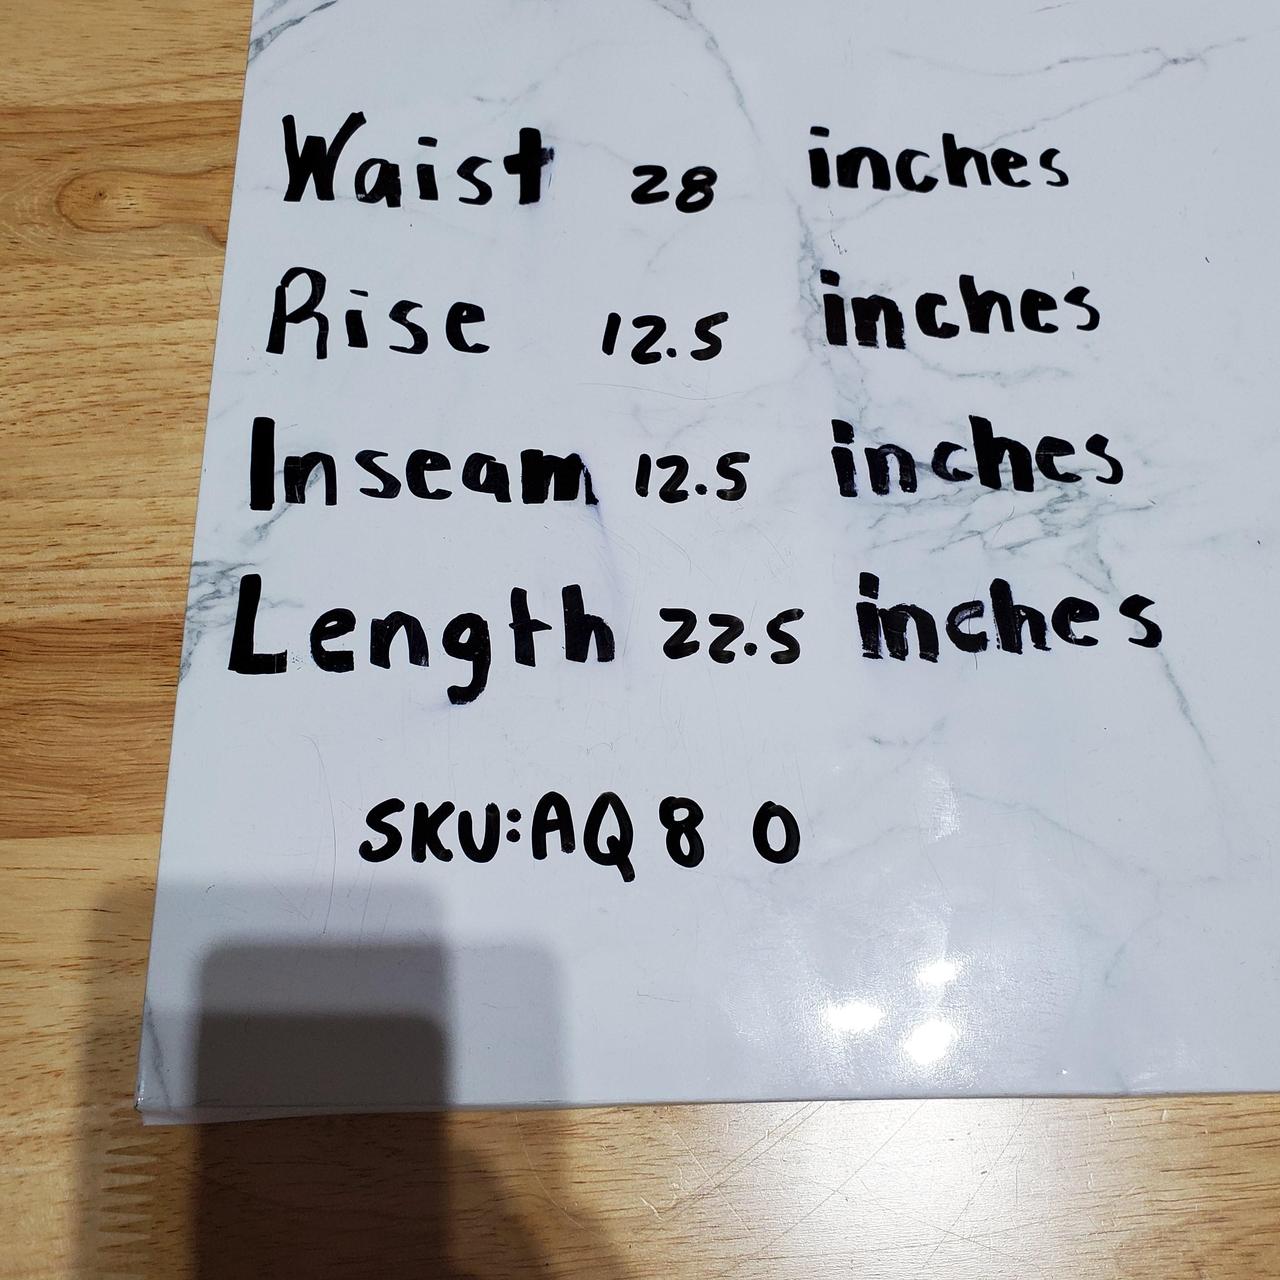 Waist 28 inches
Rise 12.5 inches
Inseam 12.5 inches
Length 22.5 inches
SKU:AQ8 0